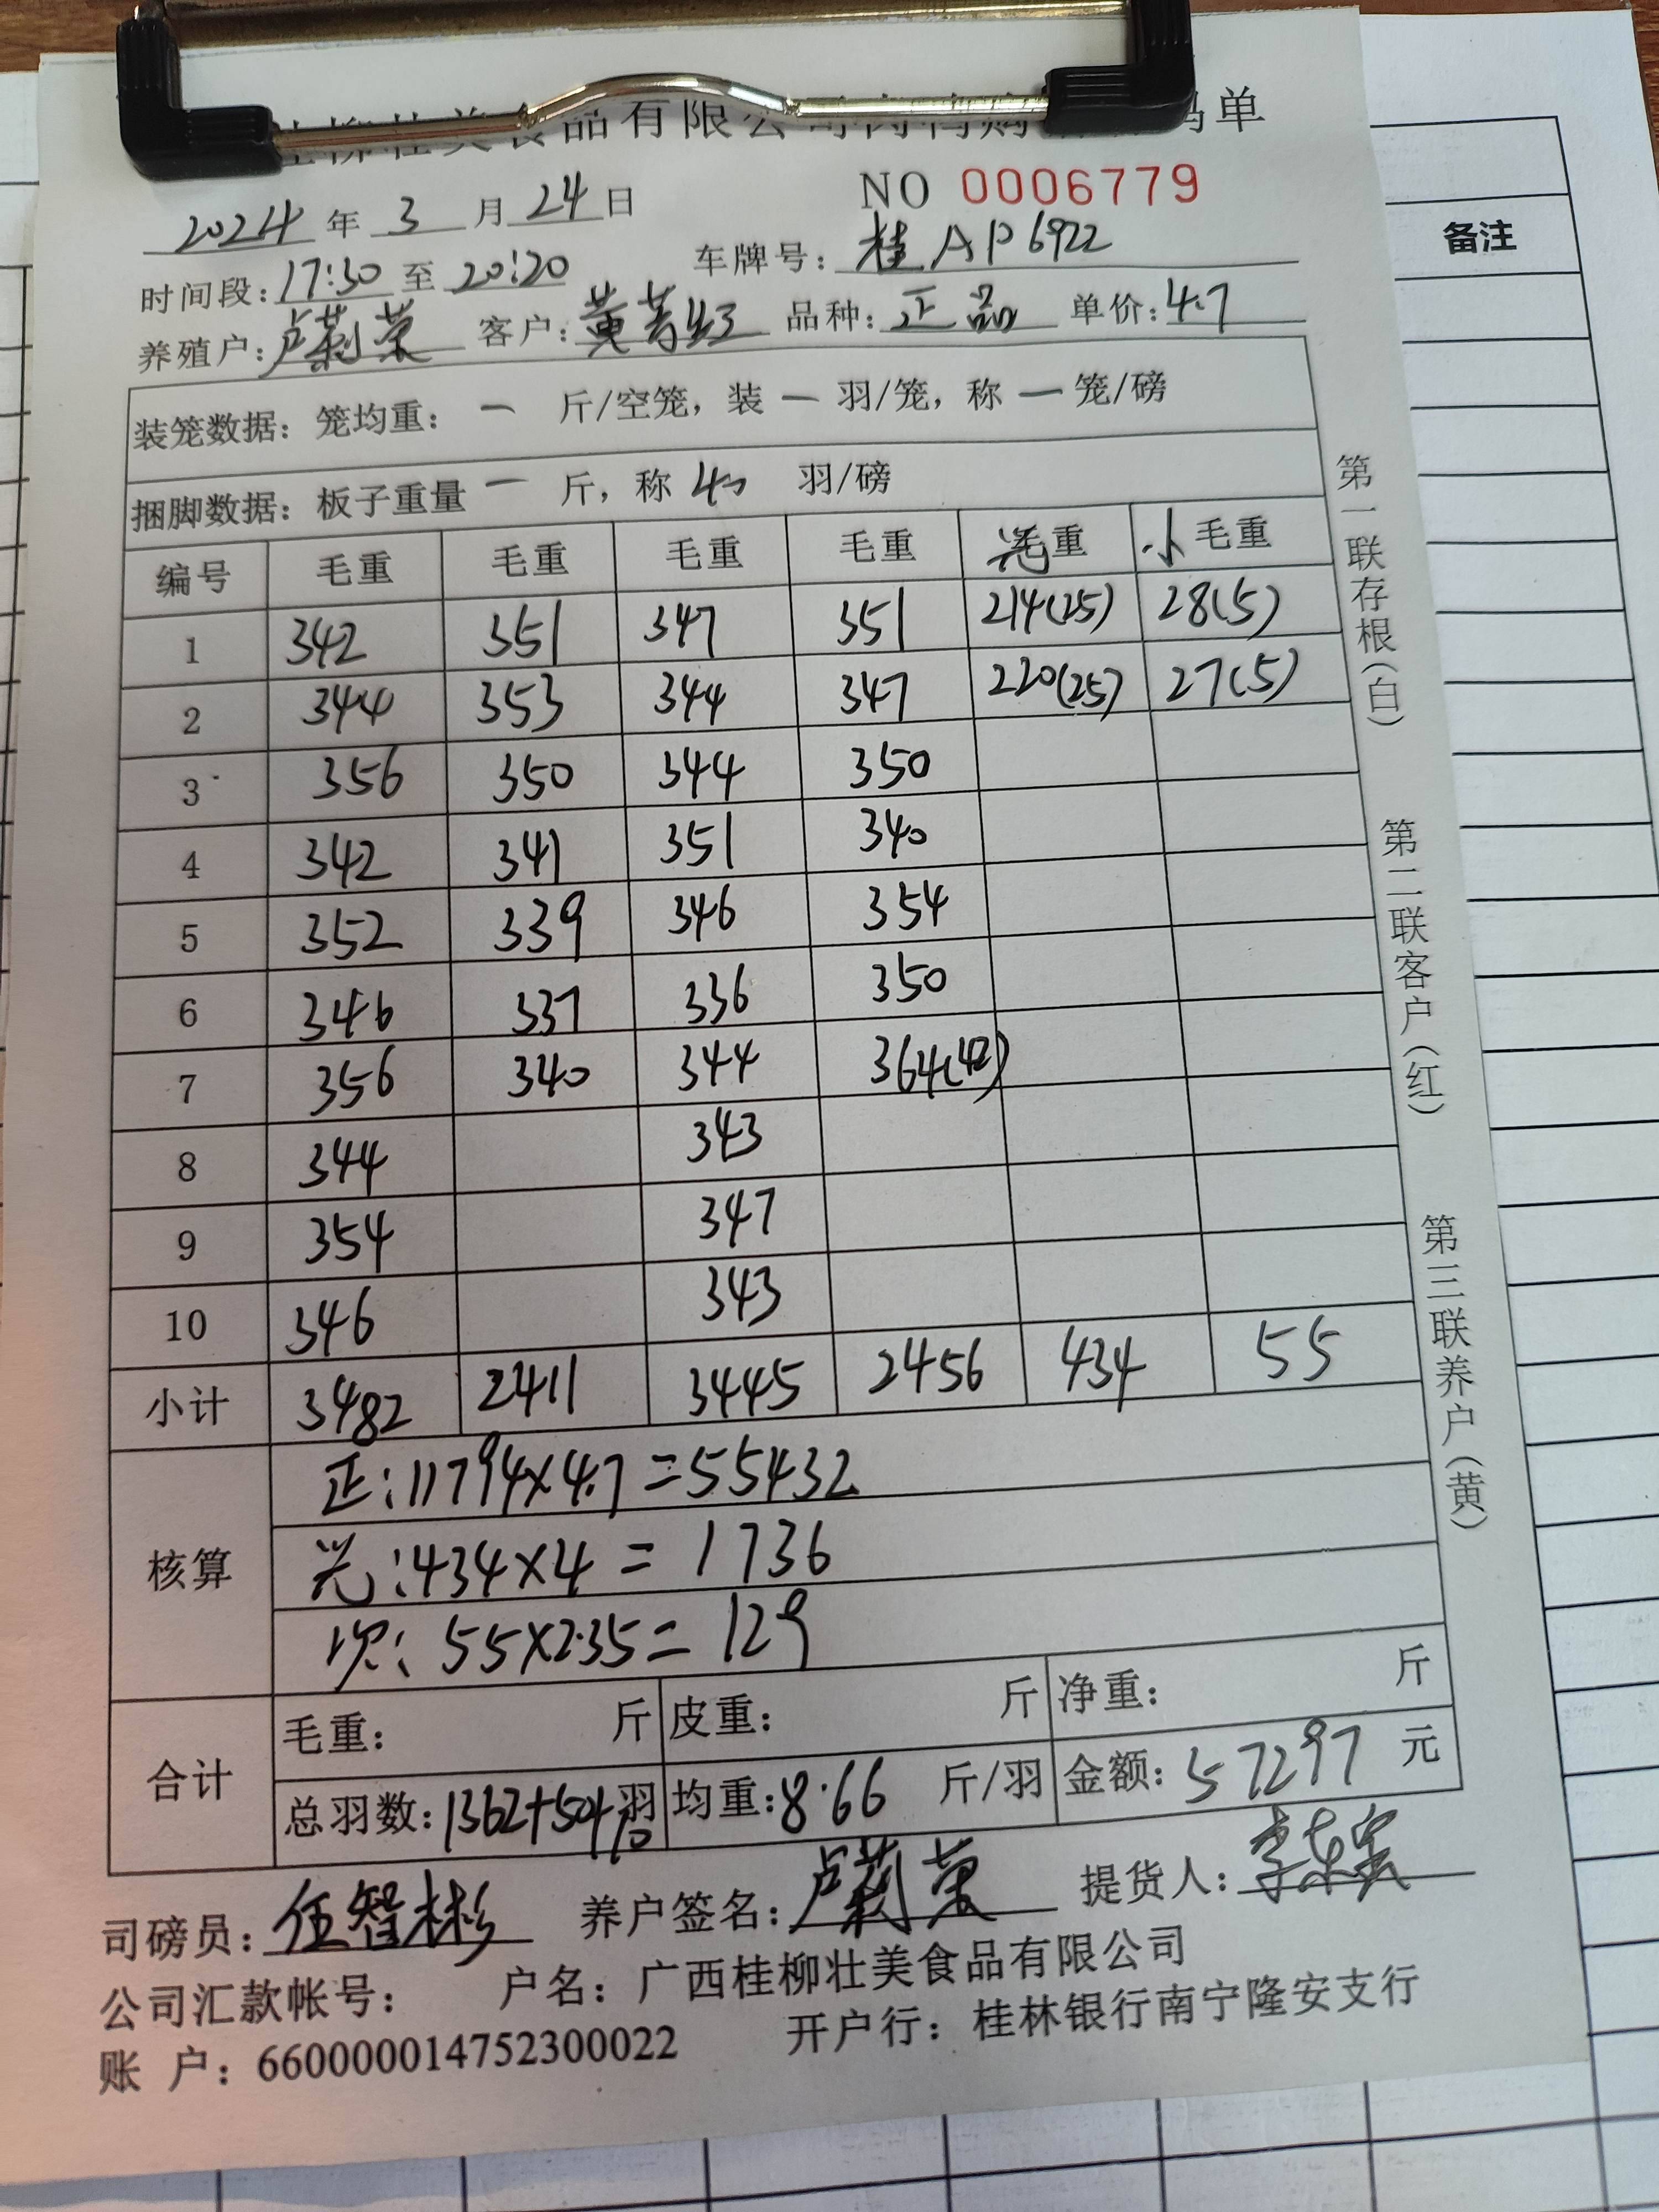 食品有限公司
码单
NO 0006779
2024 年 3 月 24 日
时间段：17:30 至 20:20 车牌号：桂AP6922
养殖户：卢莉荣 客户：黄 品种：正品 单价：4.7
备注
装笼数据：笼均重：一 斤/空笼，装 一 羽/笼，称 一 笼/磅
捆脚数据：板子重量 一 斤，称 40 羽/磅
编号 毛重 毛重 毛重 毛重 光毛重 小毛重
1 342 351 347 351 214(25) 28(5)
2 344 353 344 347 220(25) 27(5)
3 356 350 344 350
4 342 341 351 340
5 352 339 346 354
6 346 337 336 350
7 356 340 344 364(42)
8 344 343
9 354 347
10 346 343
小计 3482 2411 3445 2456 434 55
核算
正：11794×4.7=55432
光：434×4=1736
次：55×2.35=129
合计
毛重： 斤 皮重： 斤 净重： 斤
总羽数：1362+50+10 羽 均重：8.66 斤/羽 金额：57297 元
司磅员：任智彬 养户签名：卢莉荣 提货人：李
公司汇款帐号： 户名：广西桂柳壮美食品有限公司
账 户：660000014752300022 开户行：桂林银行南宁隆安支行
第一联存根（白）
第二联客户（红）
第三联养户（黄）